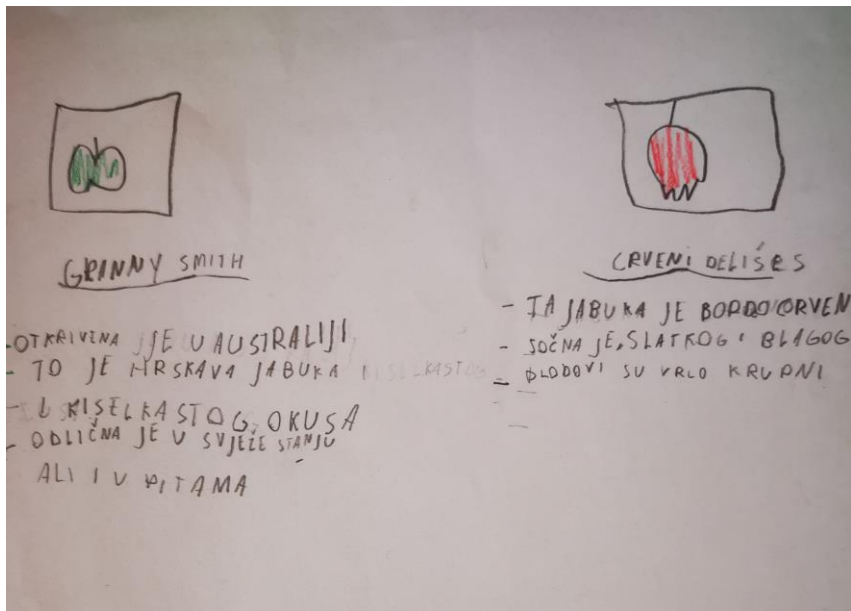 GRANNY SMITH
-OTKRIVENA JE U AUSTRALIJI
- TO JE HRSKAVA JABUKA
- I KISELKASTOG OKUSA
- ODLIČNA JE U SVJEŽE STANJU
ALI I U PITAMA
CRVENI DELIŠES
- TA JABUKA JE BORDO CRVEN
- SOČNA JE, SLATKOG I BLAGOG
- PLODOVI SU VRLO KRUPNI